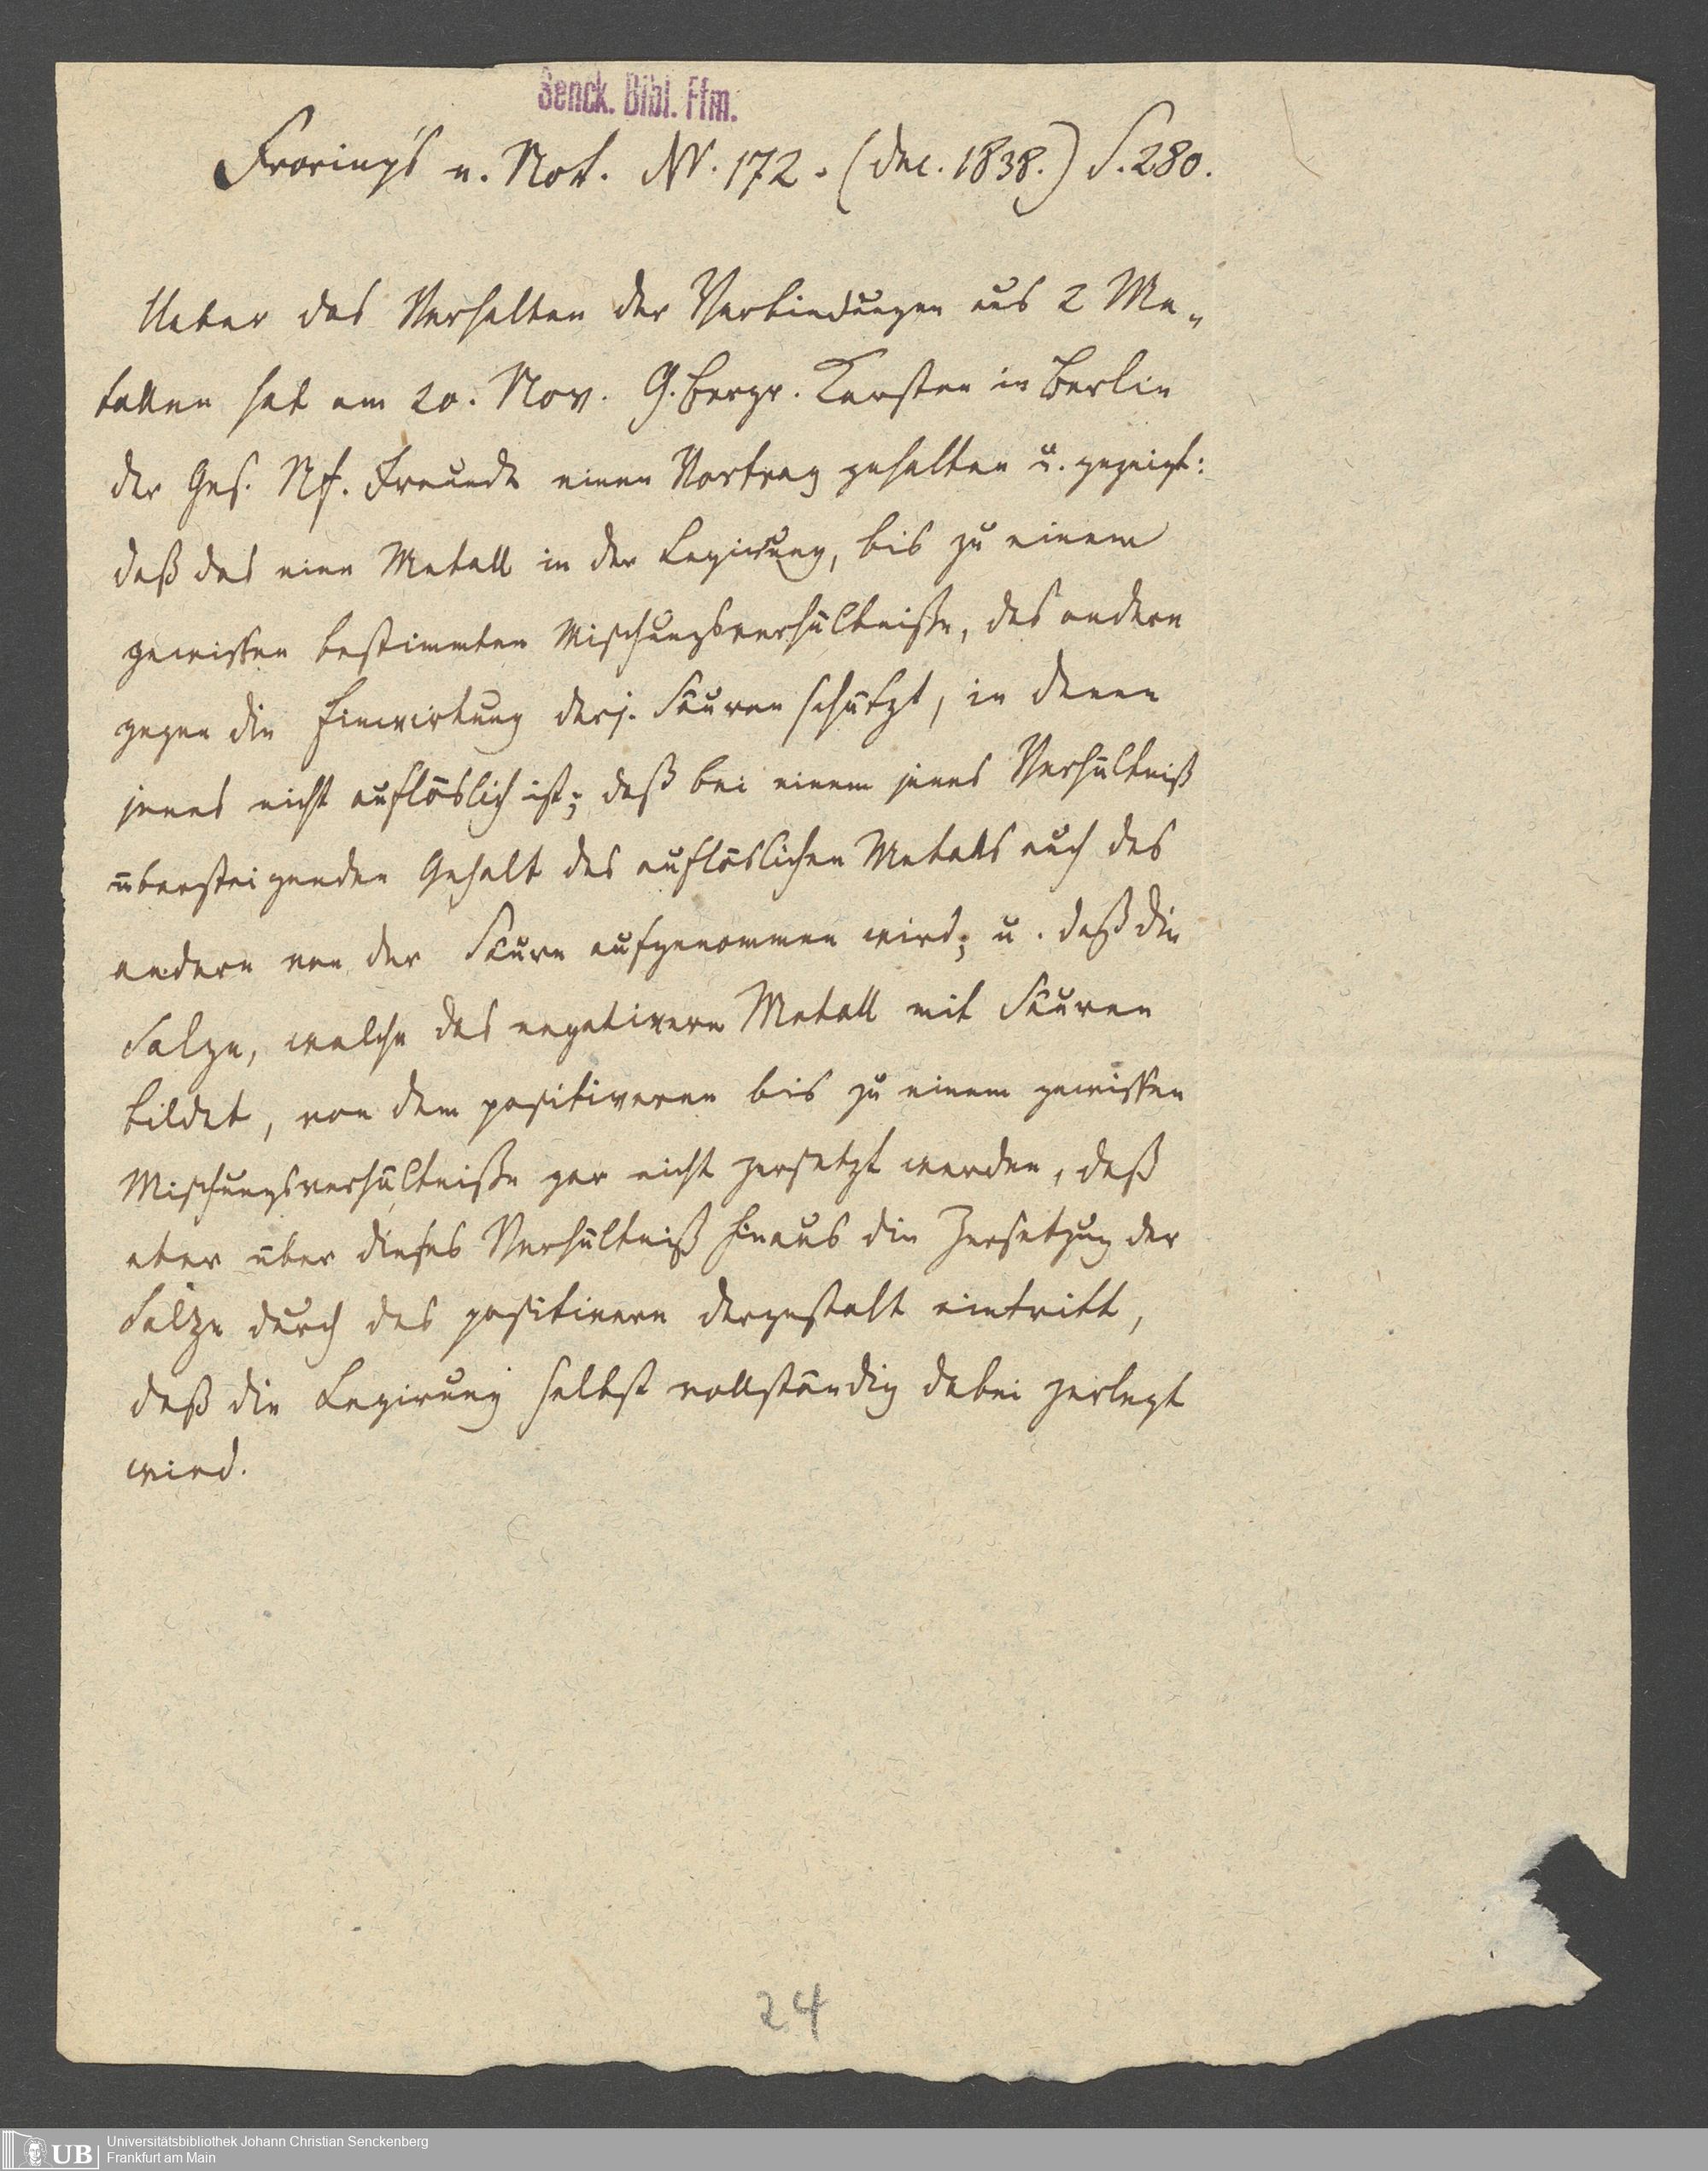 Senck. Bibl. Ffm.
Froriep's n. Not. Nr. 172. (Dec. 1838.) S. 280.
Ueber das Verhalten der Verbindungen aus 2 Me-
tallen hat am 20. Nov. G. Bergr. Karsten in Berlin
der Ges. Nf. Freunde einen Vortrag gehalten u. gezeigt:
daß das eine Metall in der Legirung, bis zu einem
gewissen bestimmten Mischungsverhältniße, das andere
gegen die Einwirkung derj. Säuren schützt, in denen
jenes nicht auflöslich ist; daß bei einem jenes Verhältniß
übersteigenden Gehalt des auflöslichen Metalls auch das
andere von der Säure aufgenommen wird; u. daß die
Salze, welche das negativere Metall mit Säuren
bildet, von dem positiveren bis zu einem gewissen
Mischungsverhältniße gar nicht zersetzt werden, daß
aber über dieses Verhältniß hinaus die Zersetzung der
Salze durch das positivere dergestalt eintritt,
daß die Legirung selbst vollständig dabei zerlegt
wird.
24
UB Universitätsbibliothek Johann Christian Senckenberg
Frankfurt am Main